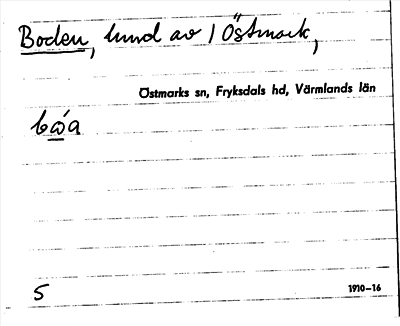 Boden, hmd av 1 Östmark,
Östmarks sn, Fryksdals hd, Värmlands län
bώa
5
1910–16